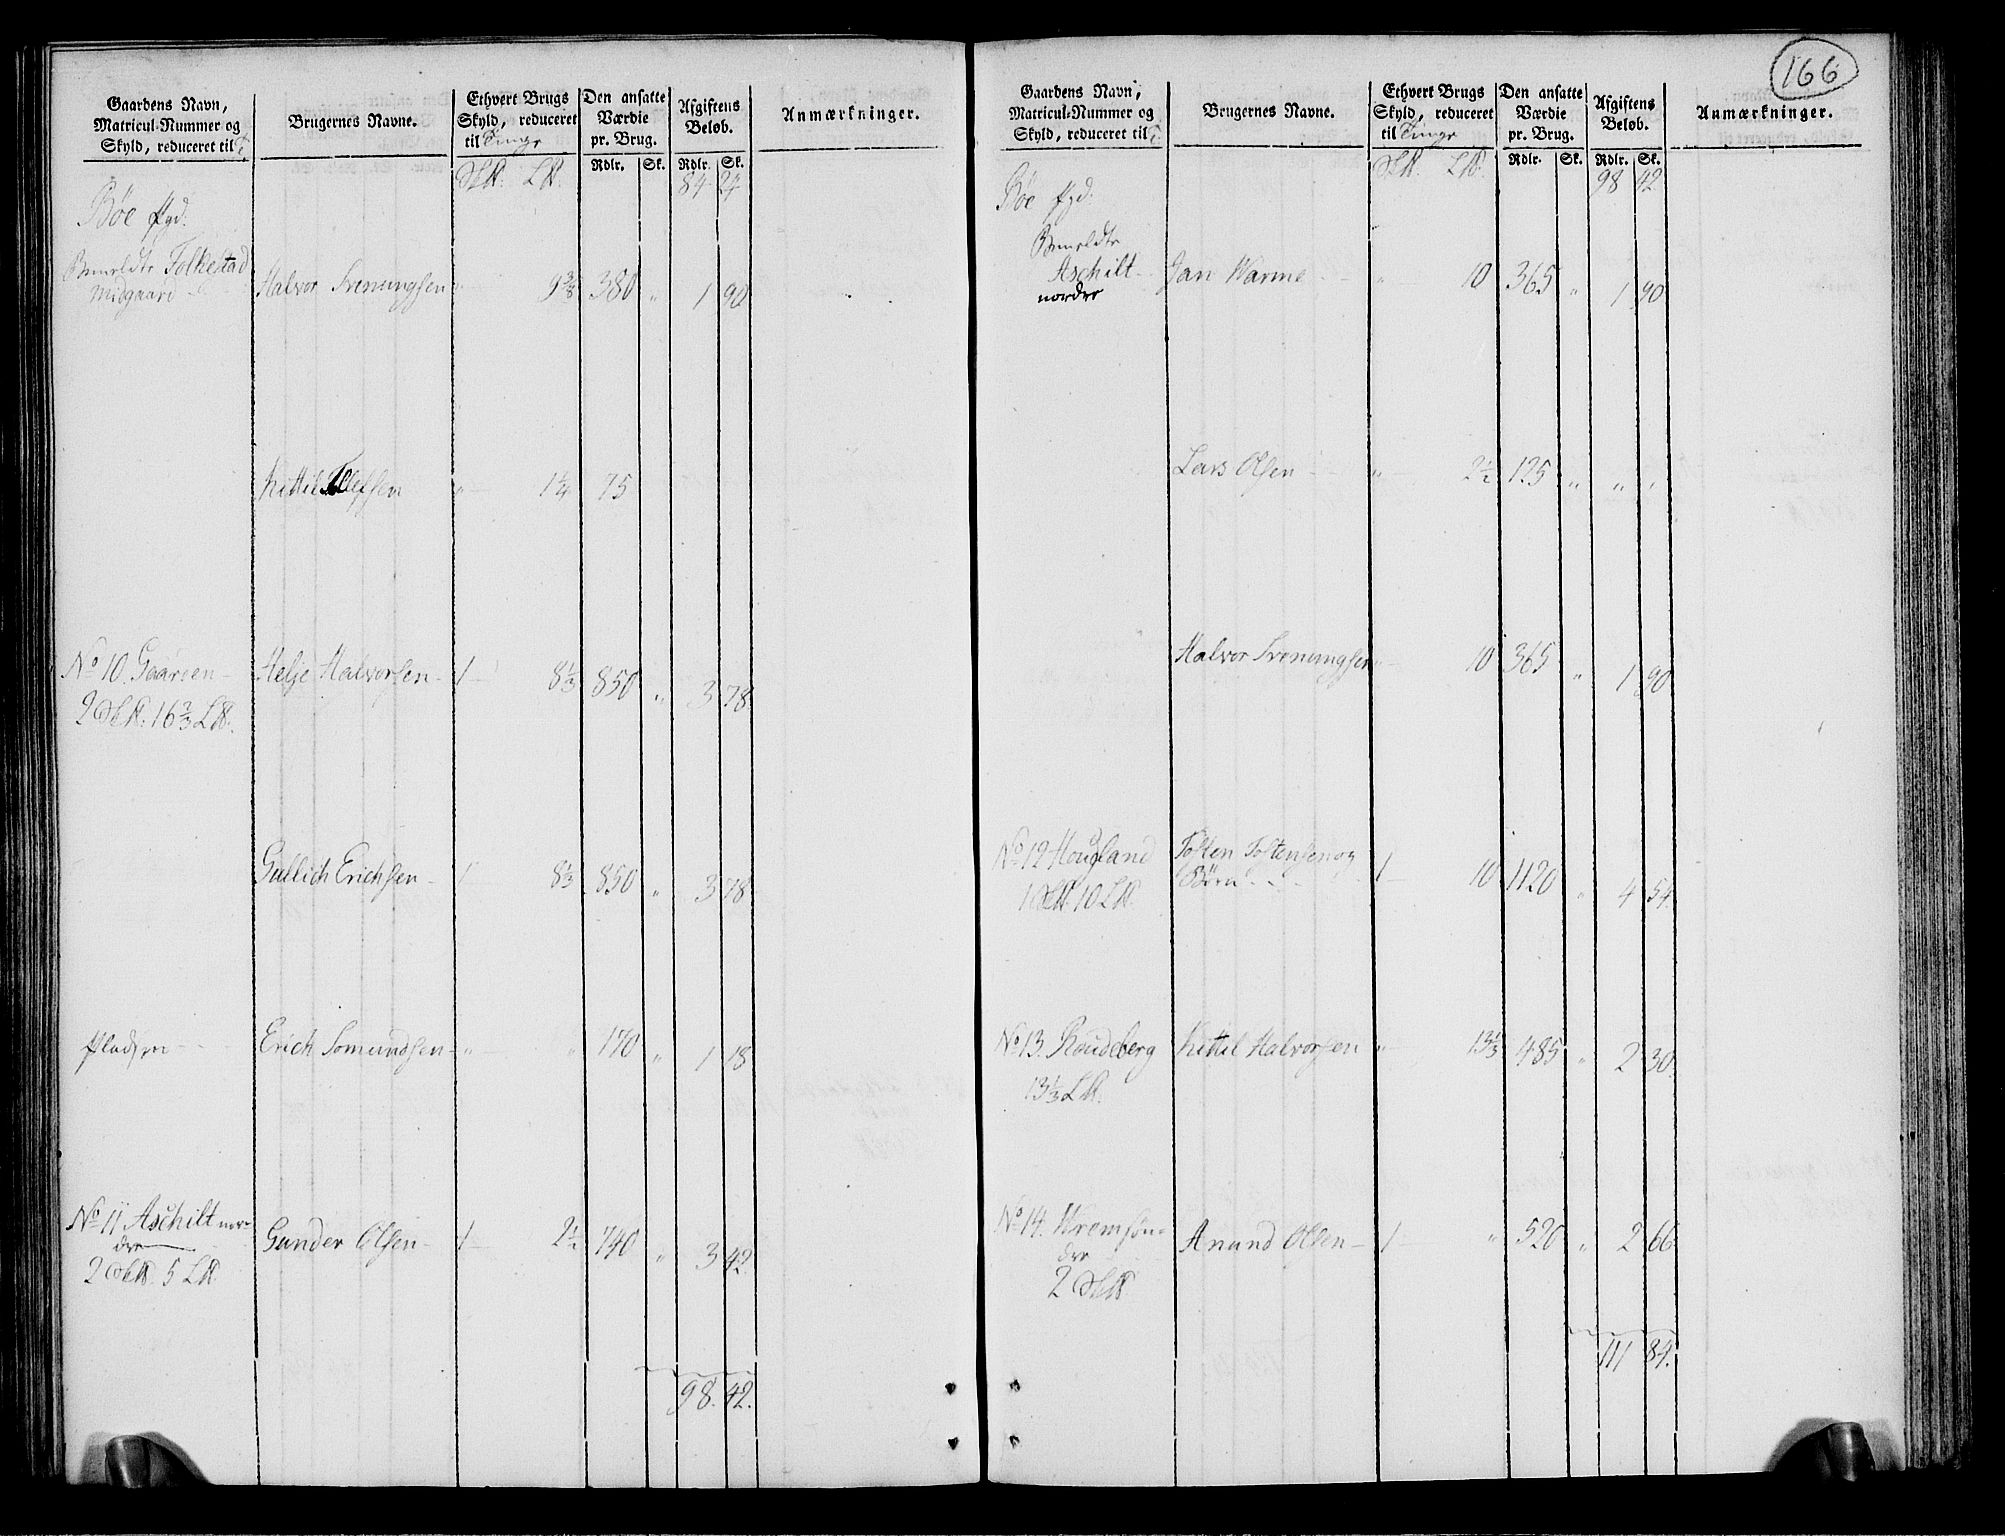 166
Gaardens Navn, Matricul-Nummer og Skyld, reduceret til
Brugernes Navne.
Ethvert Brugs Skyld, reduceret til Tunge
Den ansatte Værdie pr. Brug.
Afgiftens Beløb.
Anmærkninger.
Rdlr. Sk. Rdlr. Sk.
84 24
Bøe
Folkestad Halvor Svenungsen " 9 3/8 380 " 1 90
midgaard
Kittil 1 1/4 75
No 10. Gaarden Helje Halvorsen 1 8 1/3 850 " 3 78
2 16 2/3
Gullich Erichsen 1 8 1/3 850 " 3 78
Pladsen Erich Somundsen " " 170 " 1 18
No 11 Aschilt nor= Gunder Olsen 1 2 1/2 740 " 3 42.
dre
2 5
98. 42.
Gaardens Navn, Matricul-Nummer og Skyld, reduceret til
Brugernes Navne.
Ethvert Brugs Skyld, reduceret til Tunge
Den ansatte Værdie pr. Brug.
Afgiftens Beløb.
Anmærkninger.
Rdlr. Sk. Rdlr. Sk.
98 42
Bøe
Aschilt Jan Warme " 10 365 " 1 90
nordre
Lars Olsen " 2 1/2 125 " " "
Halvor Svenungsen " 10 365 " 1 90
No 12 Hougland Tosten Tostensen og
Børn 1 10 1120 " 4 54
1 10
No 13. Roudeberg Kittil Halvorsen " 13 1/3 485 " 2 30
13 1/3
No 14. Anund Olsen 1 " 520 " 2 66
dre
2
111 84.